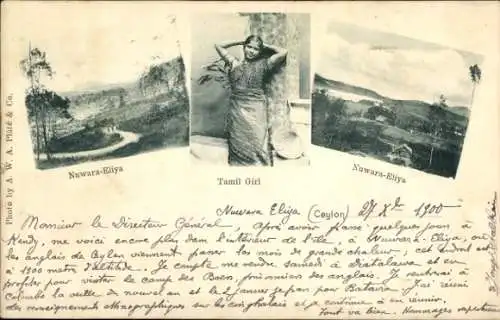 Photo by A. W. A. Plâté & Co.
Nuwara-Eliya
Tamil Girl
Nuwara-Eliya
Nuwara Eliya (Ceylon) 27 Xbre 1900
Monsieur le Directeur Général, après avoir passé quelques jours à
Kandy, me voici encore plus dans l'intérieur de l'île, à Nuwara-Eliya, où
les anglais de Ceylan viennent passer les mois de grande chaleur, cet endroit est
à 1900 mètres d'altitude. Je compte me rendre samedi à Diatalawa et en
profiter pour visiter le camp des Boers, prisonniers des anglais. Je rentrerai à
Colombo la veille du nouvel an et le 2 janvier je pars pour Batavia. J'ai réuni
des renseignements ethnographiques sur les cinghalais et à continue à en réunir.
Tout va bien. Hommages respectueux